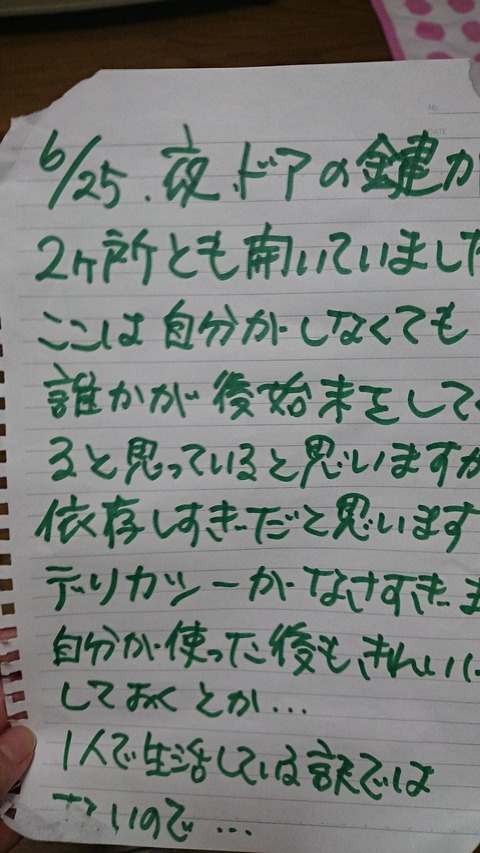 6/25.夜.ドアの鍵が
2ヶ所とも開いていました
ここは自分がしなくても
誰かが後始末をしてく
ると思っていると思いますが
依存しすぎだと思います
デリカシーがなさすぎま
自分が使った後もきれいに
しておくとか...
1人で生活している訳では
ないので...